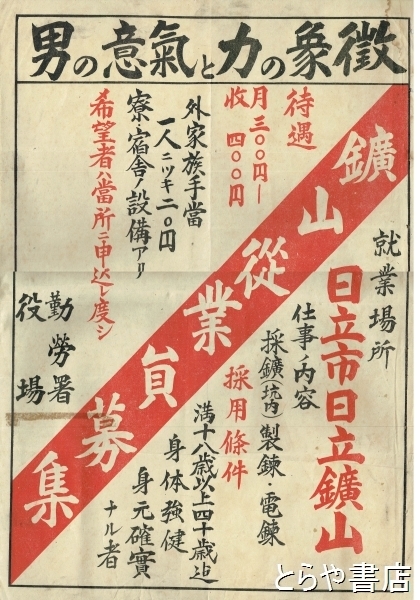 男の意氣と力の象徴
鑛山従業員募集
就業場所
日立市日立鑛山
仕事ノ内容
採鑛(坑内)製錬・電錬
採用條件
満十八歳以上四十歳迠
身体強健
身元確實
ナル者
待遇
月収
三〇〇円ー
四〇〇円
外家族手當
一人ニツキ二〇円
寮・宿舎ノ設備アリ
希望者ハ當所ニ申込レ度シ
勤労署
役場
とらや書店